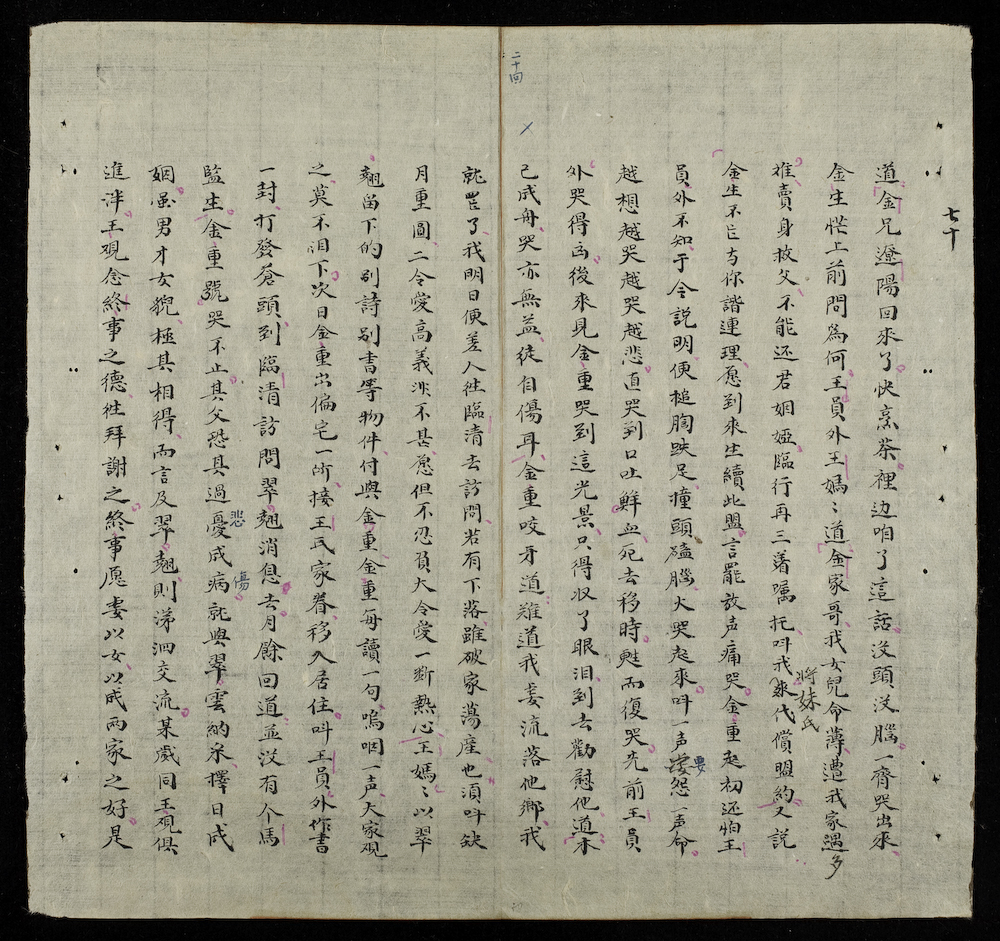 七十
道金兄遼陽回來了快烹茶裡边咱了這話没頭没腦一齊哭出來
金生忙上前問為何王員外王媽〻道金家哥我女兒命薄遭我家遇多
难賣身救父不能还君姻婭臨行再三着嘱托呌我將妹氏代償盟約又說
金生不㠯与你諧連理愿到來生續此盟言罷放声痛哭金重起初还怕王
員外不知于今説明便槌胸跌足撞頭磕腦大哭起來呌一声愛要怨一声命
越想越哭越哭越悲直哭到口吐鮮血死去移時甦而復哭先前王員
外哭得凶後來見金重哭到這光景只得収了眼泪到去勸慰他道木
已成舟哭亦無益徒自傷耳金重咬牙道难道我妻流落他鄉我
就罢了我明日便差人徃臨清去訪問若有下落雖破家蕩産也須呌缺
月重圓二令愛高義淡不甚愿但不忍負大令愛一断熱心王媽〻以翠
翹留下的别詩别書等物件付與金重金重每讀一句嗚咽一声大家观
之莫不泪下次日金重出偏宅一所接王氏家眷移入居住呌王員外作書
一封打發蒼頭到臨清訪問翠翹消息去月餘回道並没有个馬
監生金重號哭不止其父恐其過憂悲成病傷就與翠雲納采擇日成
姻虽男才女貌極其相得而言及翠翹則涕泗交流某歲同王观俱
進泮王观念終事之德徃拜謝之終事愿妻以女以成兩家之好是
二十回